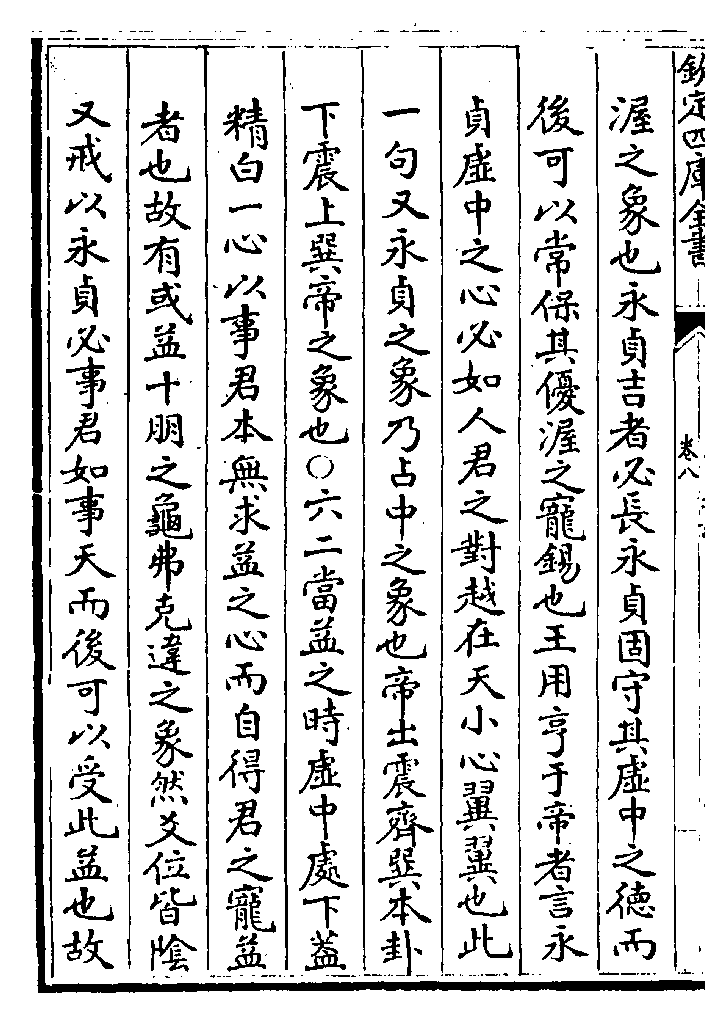 欽定四庫全書
卷八
渥之象也永貞吉者必長永貞固守其虛中之德而
後可以常保其優渥之寵錫也王用亨于帝者言永
貞虛中之心必如人君之對越在天小心翼翼也此
一句又永貞之象乃占中之象也帝出震齊巽本卦
下震上巽帝之象也○六二當益之時虛中處下蓋
精白一心以事君本無求益之心而自得君之寵益
者也故有或益十朋之龜弗克違之象然爻位皆陰
又戒以永貞必事君如事天而後可以受此益也故